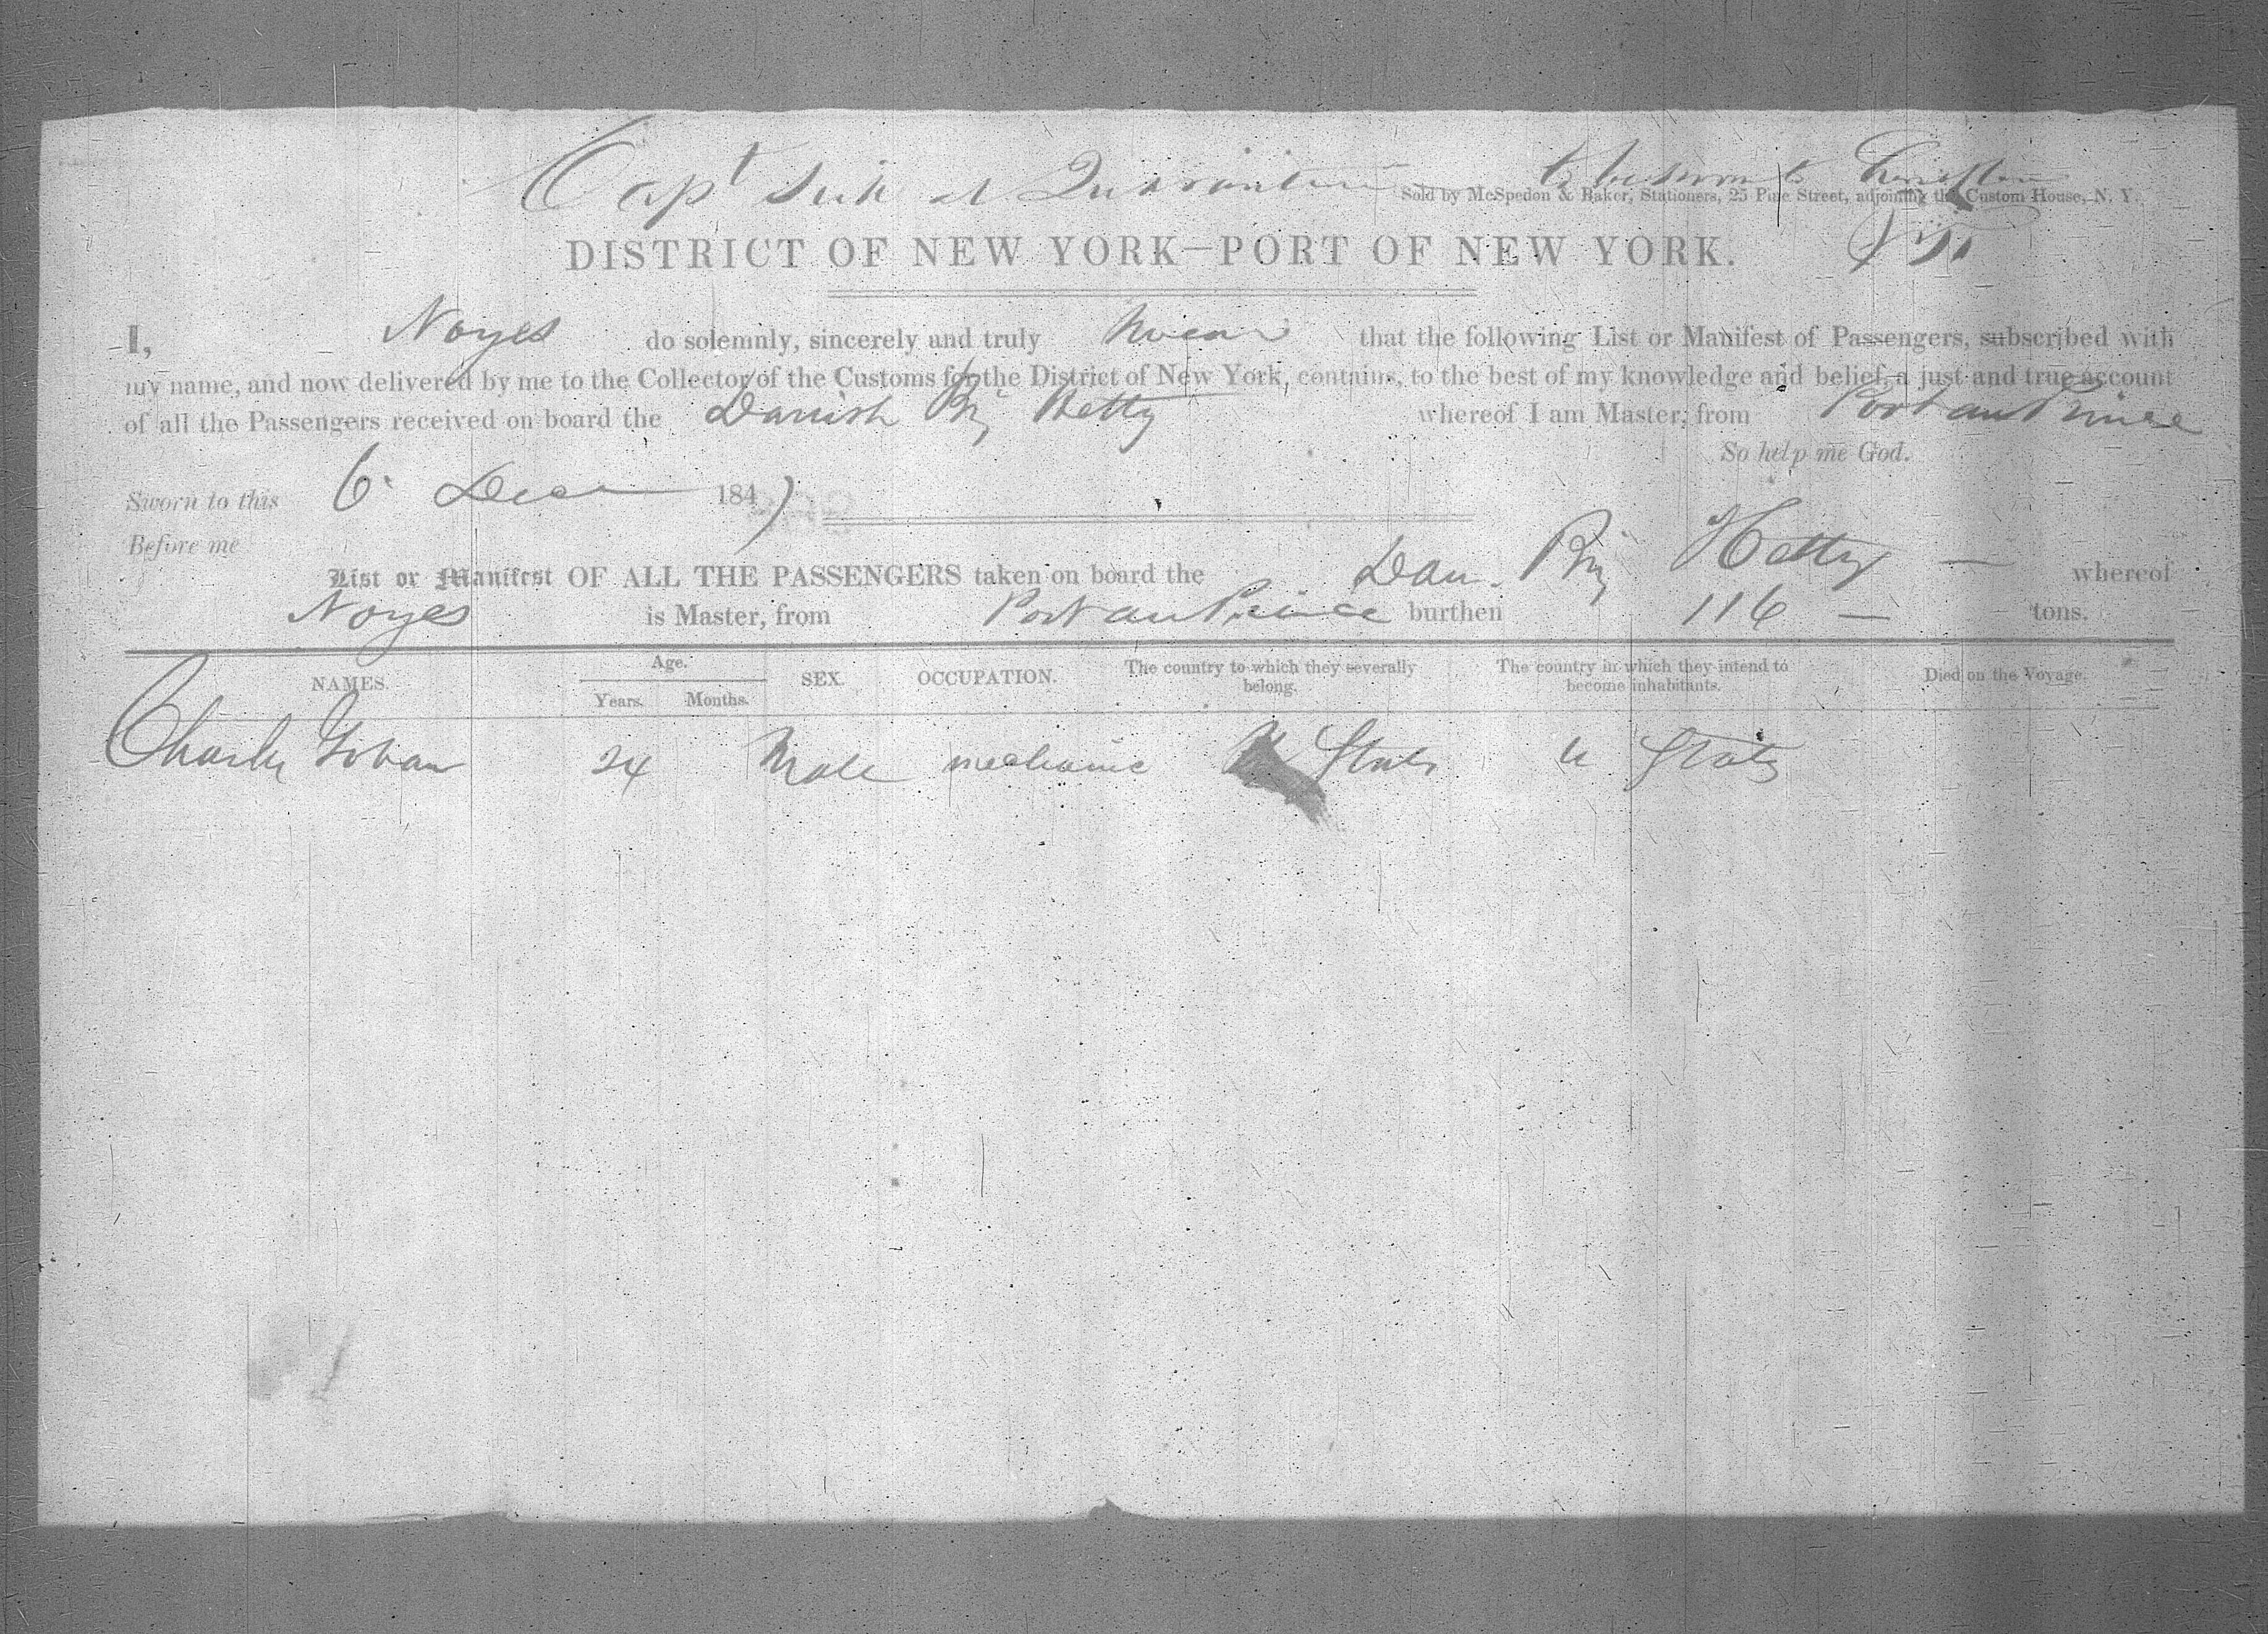 Capt Sick at Quarantine to be sworn to
Sold by McSpedon & Baker, Stationers, 25 Pine Street, adjoining the Custom House, N. Y.
DISTRICT OF NEW YORK—PORT OF NEW YORK.
I, Noyes do solemnly, sincerely and truly swear that the following List or Manifest of Passengers, subscribed with
my name, and now delivered by me to the Collector of the Customs for the District of New York, contains, to the best of my knowledge and belief, a just and true account
of all the Passengers received on board the Danish Brig Hetty whereof I am Master, from Port au Prince
So help me God.
Sworn to this 6 Decr 1847
Before me
List or Manifest OF ALL THE PASSENGERS taken on board the Dan. Brig Hetty — whereof
Noyes is Master, from Port au Prince burthen 116 — tons.
NAMES. Age. Years. Months. SEX. OCCUPATION. The country to which they severally belong. The country in which they intend to become inhabitants. Died on the Voyage.
Charles 24 Male mechanic U States U States